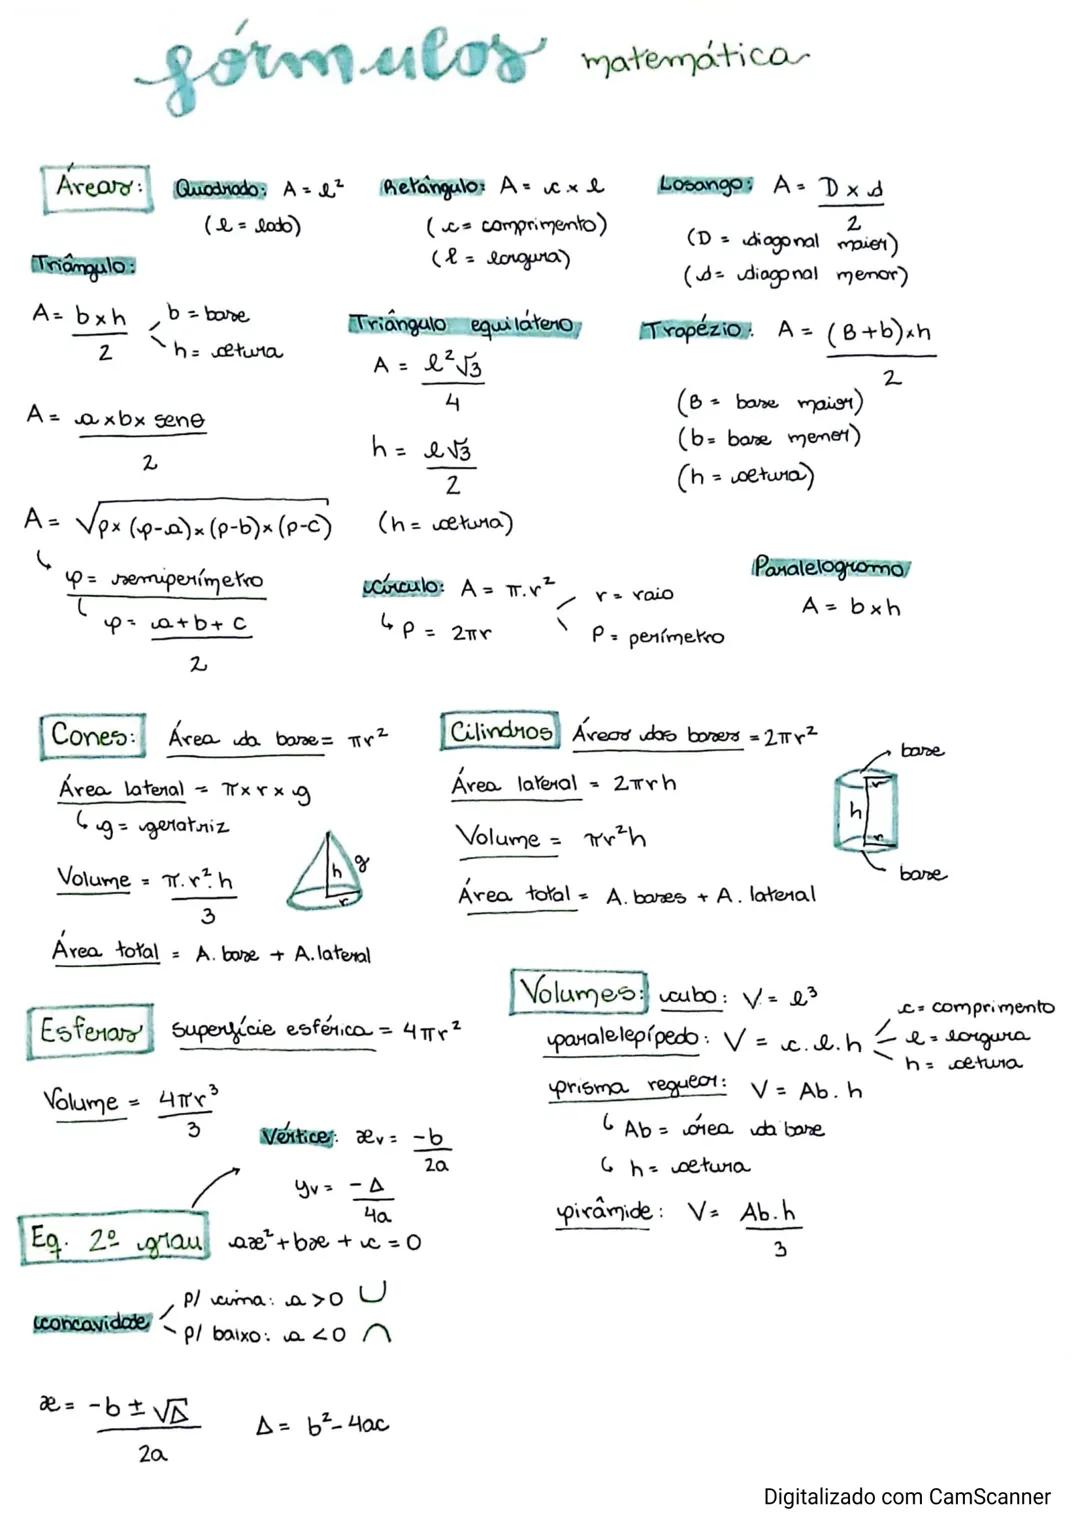 fórmulas matemática
Áreas: Quadrado: A = l² Retângulo: A = c x l Losango: A = D x d / 2
(l = lado) (c = comprimento) (D = diagonal maior)
(l = largura) (d = diagonal menor)
Triângulo:
A = b x h / 2 b = base
h = altura
Triângulo equilátero
A = l²√3 / 4
h = l√3 / 2
(h = altura)
Trapézio: A = (B+b)xh / 2
(B = base maior)
(b = base menor)
(h = altura)
A = a x b x senθ / 2
A = √p x (p-a) x (p-b) x (p-c)
p = semiperímetro
p = a + b + c / 2
Círculo: A = π.r² r = raio
P = 2πr P = perímetro
Paralelogramo
A = b x h
Cones: Área da base = πr²
Área lateral = π x r x g
g = geratriz
Volume = π.r².h / 3
h g
r
Área total = A. base + A. lateral
Cilindros Áreas das bases = 2πr²
Área lateral = 2πrh
Volume = πr²h
Área total = A. bases + A. lateral
base
r
h
r
base
Esferas Superfície esférica = 4πr²
Volume = 4πr³ / 3
Volumes: cubo: V = l³
paralelepípedo: V = c.l.h
c = comprimento
l = largura
h = altura
prisma regular: V = Ab.h
Ab = área da base
h = altura
pirâmide: V = Ab.h / 3
Vértice: xv = -b / 2a
yv = -Δ / 4a
Eq. 2º grau ax² + bx + c = 0
concavidade p/ cima: a > 0 ∪
p/ baixo: a < 0 ∩
x = -b ± √Δ / 2a Δ = b² - 4ac
Digitalizado com CamScanner